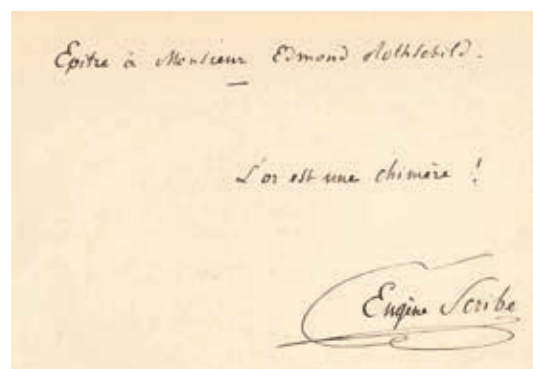 Epitre à Monsieur Edmond Rothschild.
L'or est une chimère !
Eugène Scribe